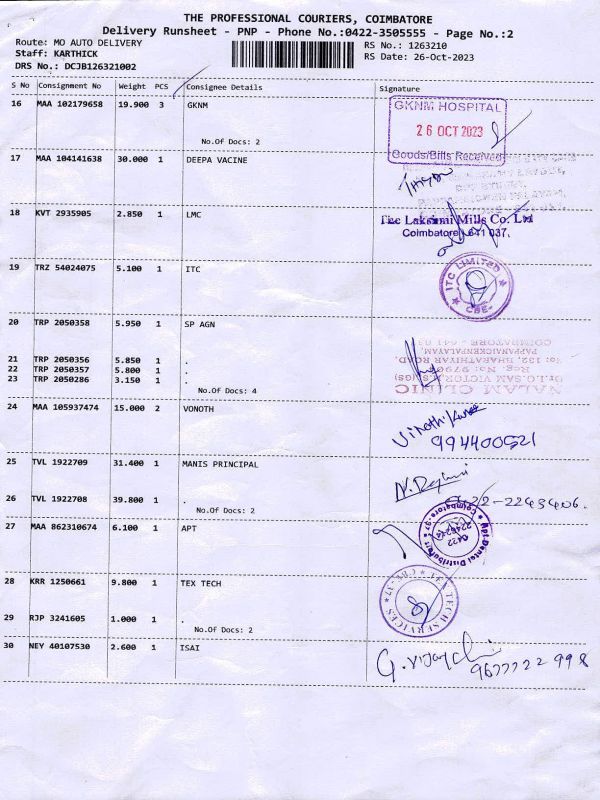 THE PROFESSIONAL COURIERS, COIMBATORE
Delivery Runsheet - PNP - Phone No.:0422-3505555 - Page No.:2
Route: MO AUTO DELIVERY
Staff: KARTHICK
DRS No.: DCJB126321002
RS No.: 1263210
RS Date: 26-Oct-2023
S No Consignment No Weight PCS Consignee Details Signature
16 MAA 102179658 19.900 3 GKNM
No.Of Docs: 2
GKNM HOSPITAL
26 OCT 2023
Goods/Bills Received
17 MAA 104141638 30.000 1 DEEPA VACINE
18 KVT 2935905 2.850 1 LMC
The Lakshmi Mills Co. Ltd
Coimbatore 641 037.
19 TRZ 54024075 5.100 1 ITC
ITC LIMITED
CBE-
20 TRP 2050358 5.950 1 SP AGN
21 TRP 2050356 5.850 1 .
22 TRP 2050357 5.800 1 .
23 TRP 2050286 3.150 1 .
No.Of Docs: 4
NALAM CLINIC
Dr.I.G.SAM VICTOR
Reg: No: 9790
No: 132, BHARATHIYAR ROAD,
PAPPANAICKENPALAYAM,
COIMBATORE - 641 03
24 MAA 105937474 15.000 2 VONOTH
994400521
25 TVL 1922709 31.400 1 MANIS PRINCIPAL
26 TVL 1922708 39.800 1 .
No.Of Docs: 2
27 MAA 862310674 6.100 1 APT
Apt Dental Distributors
Coimbatore-37
0422
28 KRR 1250661 9.800 1 TEX TECH
29 RJP 3241605 1.000 1 .
No.Of Docs: 2
TECH SERVICES
CBE-37
30 NEY 40107530 2.600 1 ISAI
G. Vijay
9677722998